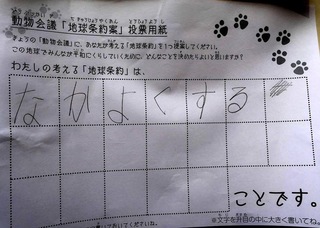 動物会議「地球条約案」投票用紙
きょうの「動物会議」に、あなたが考える「地球条約」を1つ提案してください。
この地球でみんなが平和にくらしていくために、どんなことを決めたらよいと思いますか?
わたしの考える「地球条約」は、
なかよくする
ことです。
※文字を升目の中に大きく書いてね。